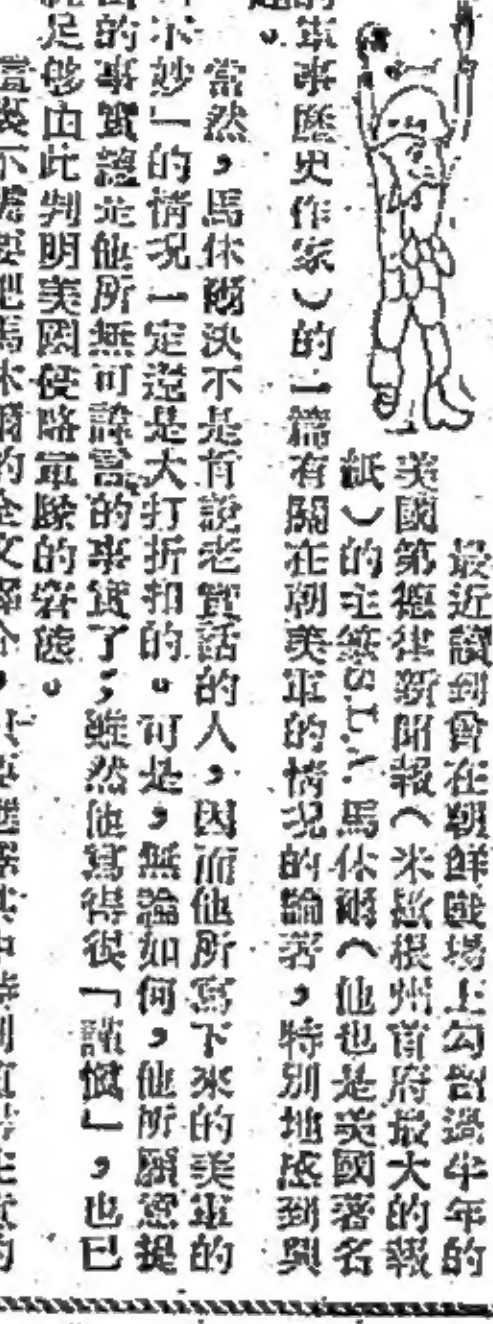 最近讀到曾在朝鮮戰場上勾留過半年的
美國第德律新聞報（米歇根州首府最大的報
紙）的主筆S.L.A.馬休爾（他也是美國著名
的軍事歷史作家）的一篇有關在朝美軍的情況的論著，特別地感到興
趣。
當然，馬休爾決不是肯說老實話的人，因而他所寫下來的美軍的
不妙」的情況一定還是大打折扣的。可是，無論如何，他所願意提
的事實總是他所無可諱言的事實了；雖然他寫得很「諧
足够由此判明美國侵略軍隊的窘態。
這裏不需要把馬休爾的全文